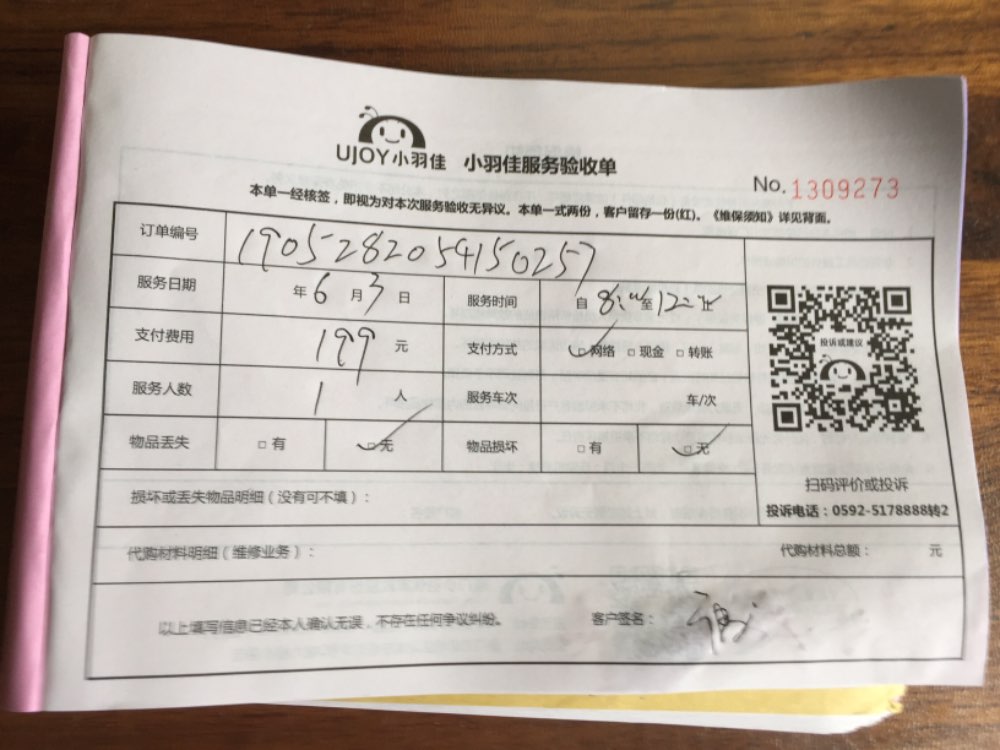 UJOY小羽佳 小羽佳服务验收单
No. 1309273
本单一经核签，即视为对本次服务验收无异议。本单一式两份，客户留存一份(红)。《维保须知》详见背面。
订单编号 1905282054150257
服务日期 年 6 月 3 日 服务时间 自 8: 至 12:
支付费用 199 元 支付方式 网络 现金 转账
投诉或建议
服务人数 1 人 服务车次 车/次
物品丢失 有 无 物品损坏 有 无
扫码评价或投诉
损坏或丢失物品明细（没有可不填）：
投诉电话：0592-5178888转2
代购材料明细（维修业务）： 代购材料总额： 元
以上填写信息已经本人确认无误，不存在任何争议纠纷。 客户签名：